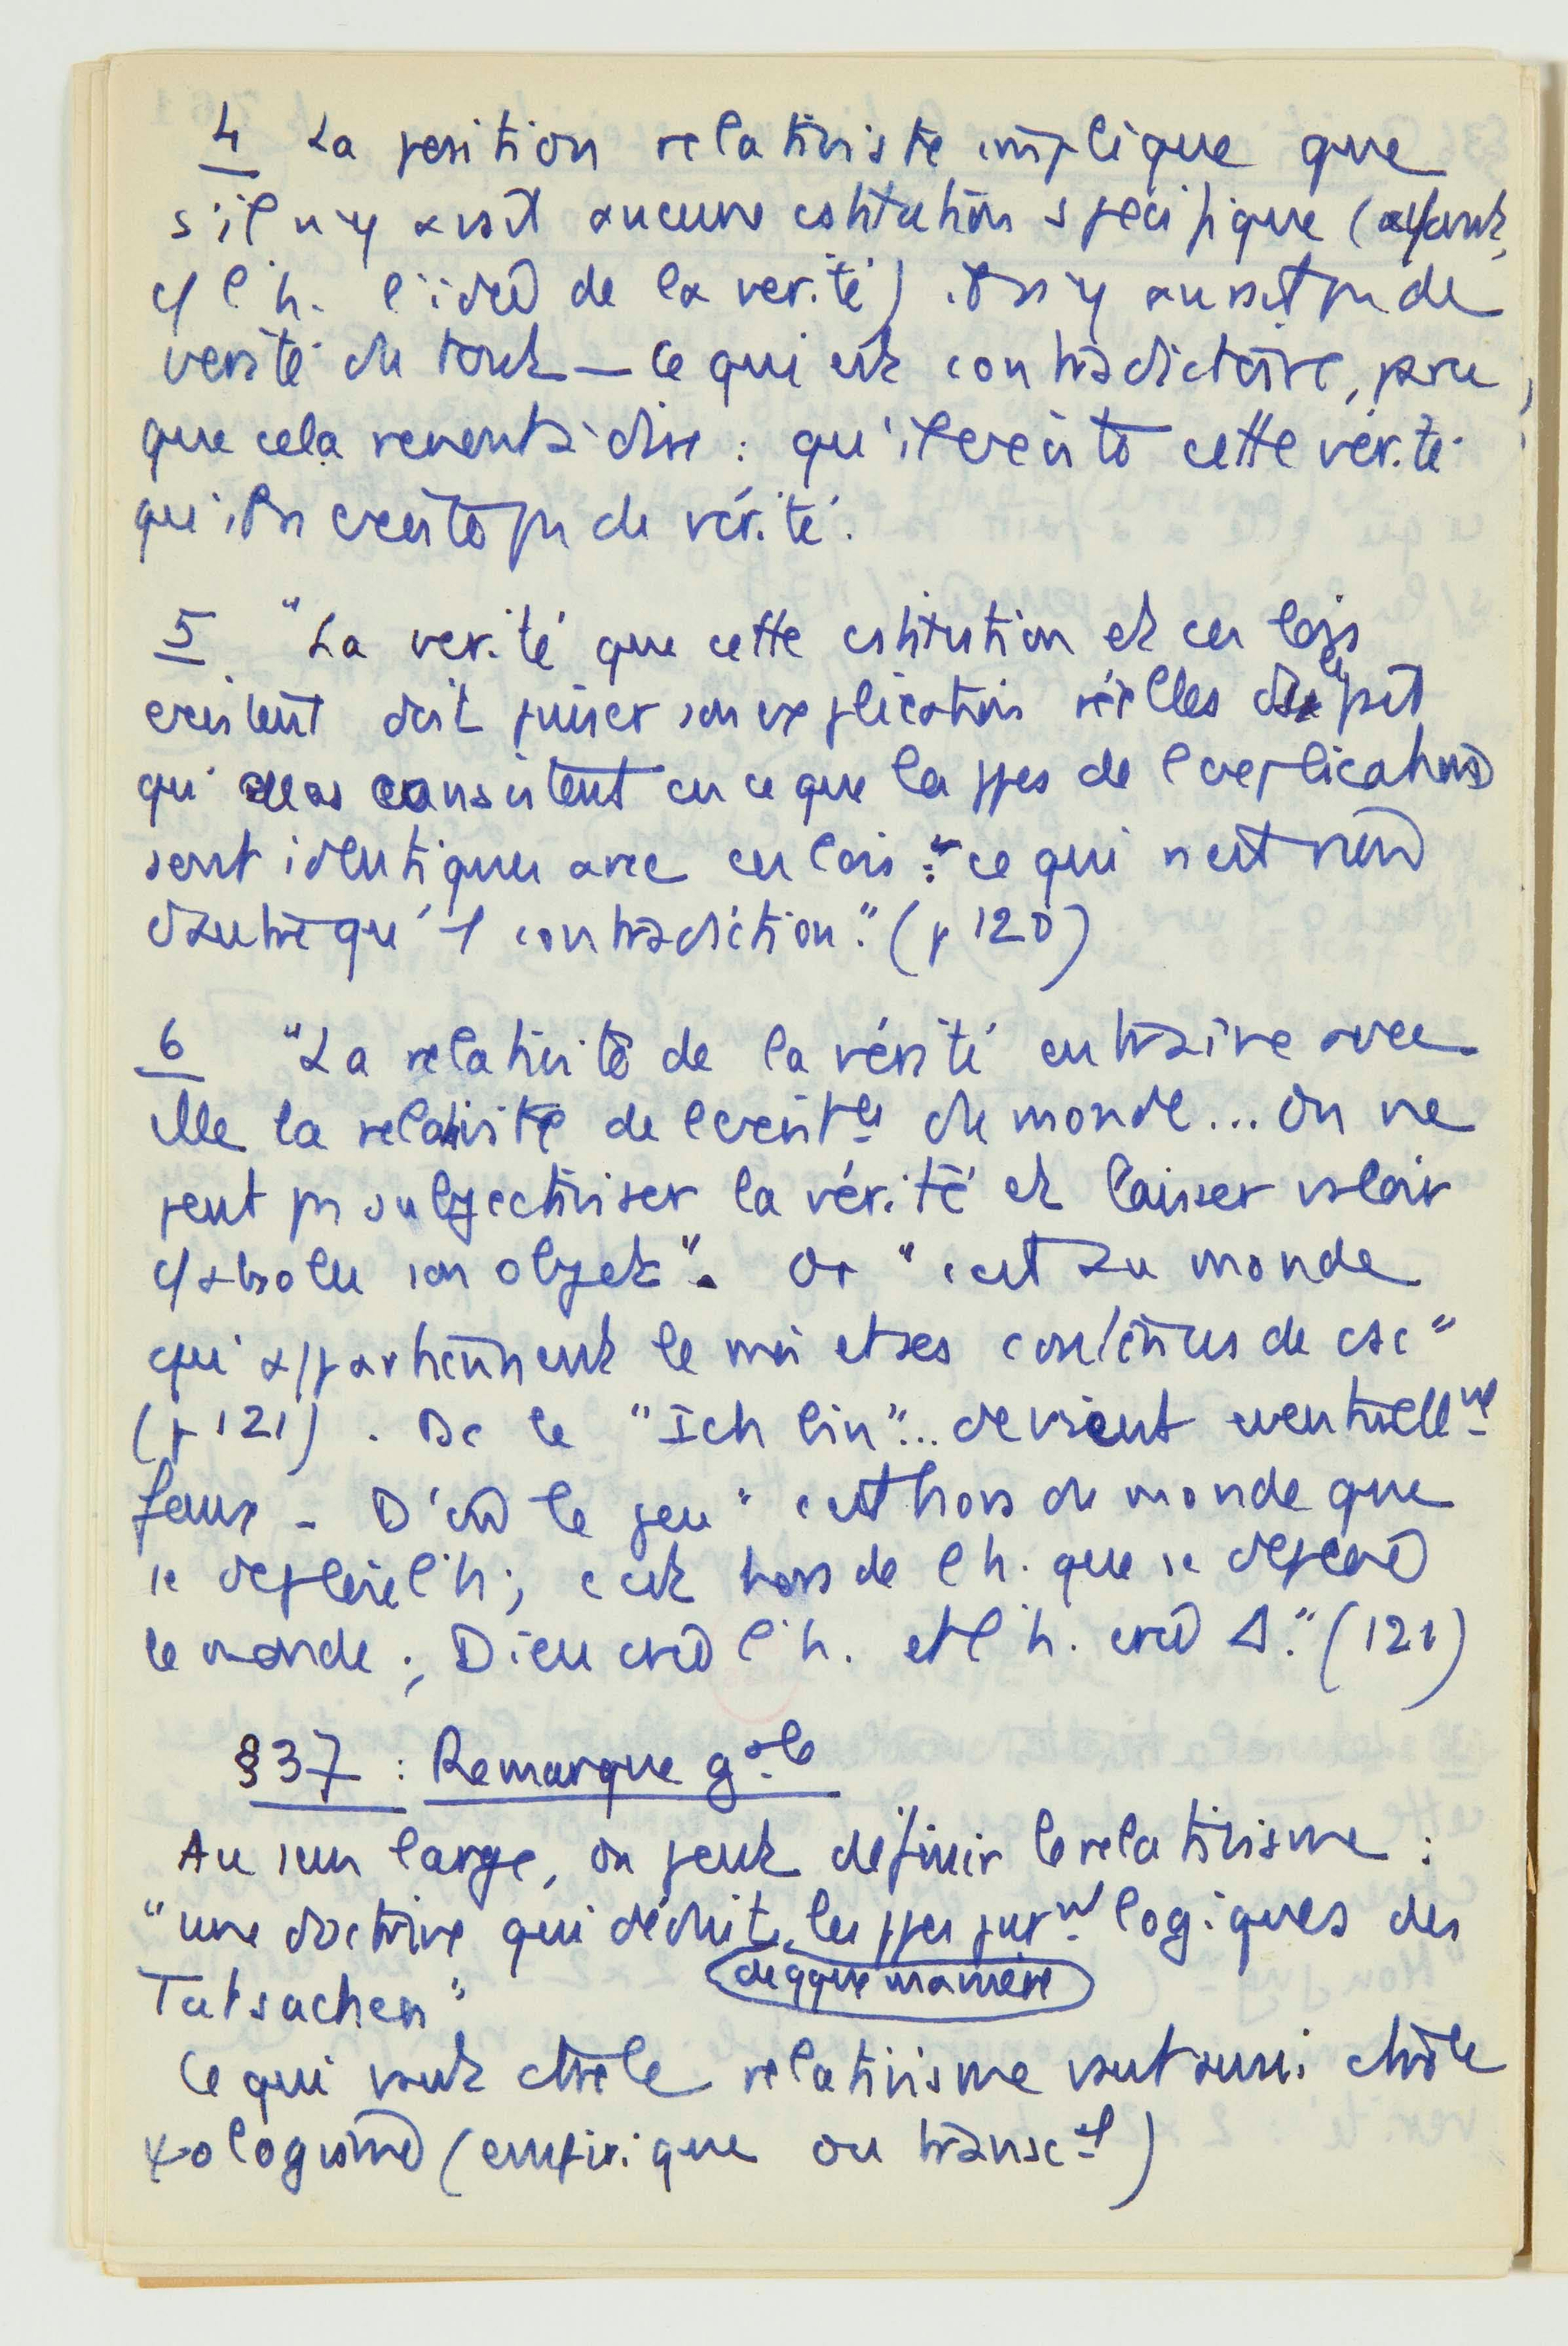 4 La position relativiste implique que
s'il n'y avait aucune cstitution spécifique (ayant,
c/ l'h. l'idée de la vérité) il n'y aurait pas de
vérité du tout — ce qui est contradictoire, parce
que cela revient à dire : qu'il existe cette vérité
qu'il n'existe pas de vérité.
5 "La vérité que cette cstitution et ces lois
existent doit puiser son explication réelles ds le fait
qui consistent en ce que la ppes de l'explication
sont identiques avec ces lois : " ce qui n'est rien
d'autre qu'1 contradiction." (p 120)
6 "La relativité de la vérité entraîne avec
elle la relativité de l'existce du monde... On ne
peut pas subjectiviser la vérité et laisser valoir
c/ absolu son objet". Or "c'est au monde
qu'appartiennent le moi et ses contenus de csc"
(p 121). Dc le "Ich bin"... devient eventuellnt
faux - D'où le jeu "c'est hors du monde que
se déploie l'h ; c'est hors de l'h. que se déploie
le monde ; Dieu crée l'h. et l'h. crée Δ." (121)
§37 : Remarque gale
Au sens large, on peut définir le relativisme :
"une doctrine qui déduit les ppes purnt logiques des
de qque manière
Tatsachen"
Ce qui vaut ctre le relativisme vaut aussi ctre le
ψologisme (empirique ou transcal)